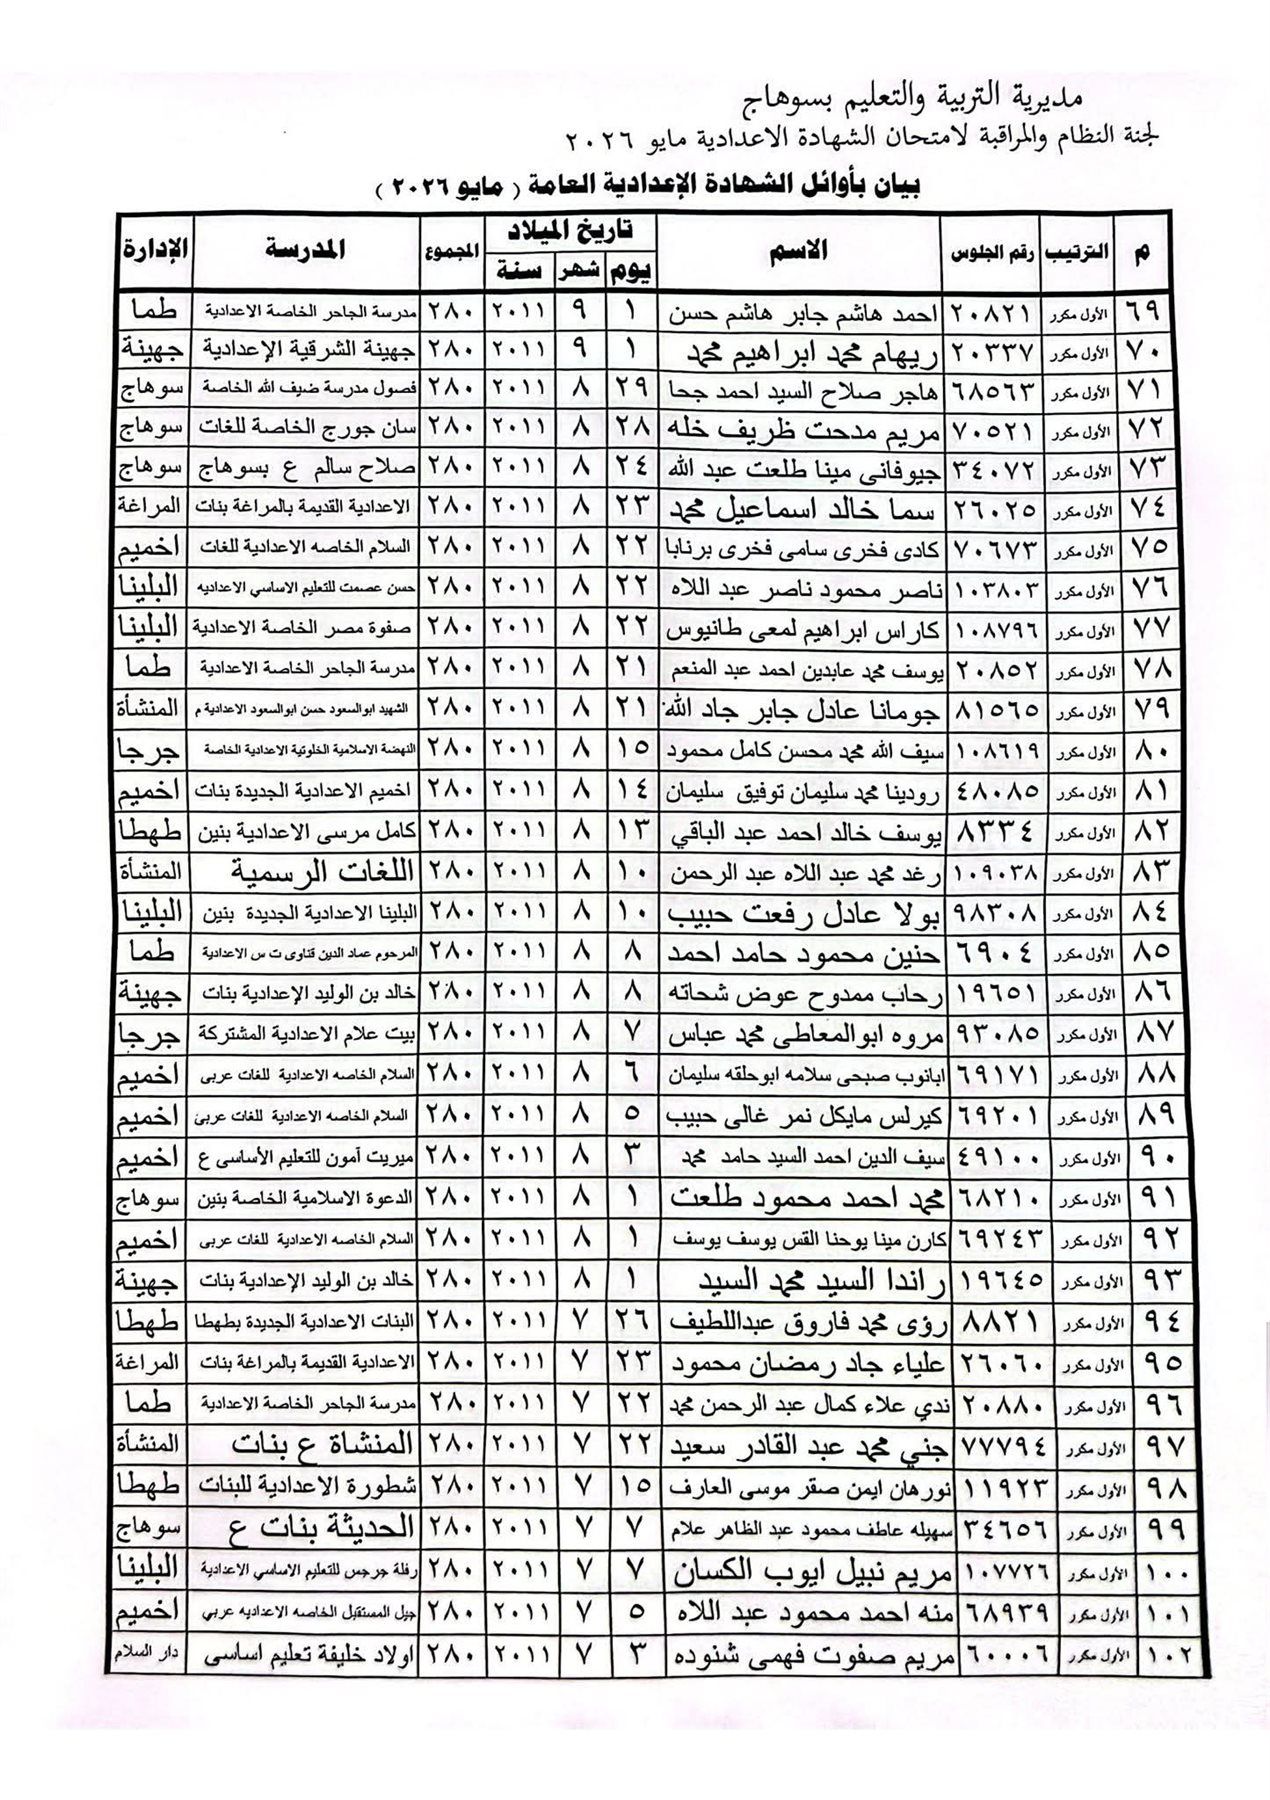 مديرية التربية والتعليم بسوهاج
لجنة النظام والمراقبة لامتحان الشهادة الاعدادية مايو ٢٠٢٦
بيان بأوائل الشهادة الإعدادية العامة ( مايو ٢٠٢٦ )
م الترتيب رقم الجلوس الاسم تاريخ الميلاد المجموع المدرسة الإدارة
يوم شهر سنة
٦٩ الأول مكرر ٢٠٨٢١ احمد هاشم جابر هاشم حسن ١ ٩ ٢٠١١ ٢٨٠ مدرسة الجاحر الخاصة الاعدادية طما
٧٠ الأول مكرر ٢٠٣٣٧ ريهام محمد ابراهيم محمد ١ ٩ ٢٠١١ ٢٨٠ جهينة الشرقية الإعدادية جهينة
٧١ الأول مكرر ٦٨٥٦٣ هاجر صلاح السيد احمد جحا ٢٩ ٨ ٢٠١١ ٢٨٠ فصول مدرسة ضيف الله الخاصة سوهاج
٧٢ الأول مكرر ٧٠٥٢١ مريم مدحت ظريف خله ٢٨ ٨ ٢٠١١ ٢٨٠ سان جورج الخاصة للغات سوهاج
٧٣ الأول مكرر ٣٤٠٧٢ جيوفانى مينا طلعت عبد الله ٢٤ ٨ ٢٠١١ ٢٨٠ صلاح سالم ع بسوهاج سوهاج
٧٤ الأول مكرر ٢٦٠٢٥ سما خالد اسماعيل محمد ٢٣ ٨ ٢٠١١ ٢٨٠ الاعدادية القديمة بالمراغة بنات المراغة
٧٥ الأول مكرر ٧٠٦٧٣ كادى فخرى سامى فخرى برنابا ٢٢ ٨ ٢٠١١ ٢٨٠ السلام الخاصه الاعدادية للغات اخميم
٧٦ الأول مكرر ١٠٣٨٠٣ ناصر محمود ناصر عبد اللاه ٢٢ ٨ ٢٠١١ ٢٨٠ حسن عصمت للتعليم الاساسي الاعداديه البلينا
٧٧ الأول مكرر ١٠٨٧٩٦ كاراس ابراهيم لمعى طانيوس ٢٢ ٨ ٢٠١١ ٢٨٠ صفوة مصر الخاصة الاعدادية البلينا
٧٨ الأول مكرر ٢٠٨٥٢ يوسف محمد عابدين احمد عبد المنعم ٢١ ٨ ٢٠١١ ٢٨٠ مدرسة الجاحر الخاصة الاعدادية طما
٧٩ الأول مكرر ٨١٥٦٥ جومانا عادل جابر جاد الله ٢١ ٨ ٢٠١١ ٢٨٠ الشهيد ابوالسعود حسن ابوالسعود الاعدادية م المنشأة
٨٠ الأول مكرر ١٠٨٦١٩ سيف الله محمد محسن كامل محمود ١٥ ٨ ٢٠١١ ٢٨٠ النهضة الاسلامية الخلوتية الاعدادية الخاصة جرجا
٨١ الأول مكرر ٤٨٠٨٥ رودينا محمد سليمان توفيق سليمان ١٤ ٨ ٢٠١١ ٢٨٠ اخميم الاعدادية الجديدة بنات اخميم
٨٢ الأول مكرر ٨٣٣٤ يوسف خالد احمد عبد الباقي ١٣ ٨ ٢٠١١ ٢٨٠ كامل مرسى الاعدادية بنين طهطا
٨٣ الأول مكرر ١٠٩٠٣٨ رغد محمد عبد اللاه عبد الرحمن ١٠ ٨ ٢٠١١ ٢٨٠ اللغات الرسمية المنشأة
٨٤ الأول مكرر ٩٨٣٠٨ بولا عادل رفعت حبيب ١٠ ٨ ٢٠١١ ٢٨٠ البلينا الاعدادية الجديدة بنين البلينا
٨٥ الأول مكرر ٦٩٠٤ حنين محمود حامد احمد ٨ ٨ ٢٠١١ ٢٨٠ المرحوم عماد الدين قناوى ت س الاعدادية طما
٨٦ الأول مكرر ١٩٦٥١ رحاب ممدوح عوض شحاته ٨ ٨ ٢٠١١ ٢٨٠ خالد بن الوليد الإعدادية بنات جهينة
٨٧ الأول مكرر ٩٣٠٨٥ مروه ابوالمعاطى محمد عباس ٧ ٨ ٢٠١١ ٢٨٠ بيت علام الاعدادية المشتركة جرجا
٨٨ الأول مكرر ٦٩١٧١ ابانوب صبحى سلامه ابوحلقه سليمان ٦ ٨ ٢٠١١ ٢٨٠ السلام الخاصه الاعدادية للغات عربى اخميم
٨٩ الأول مكرر ٦٩٢٠١ كيرلس مايكل نمر غالى حبيب ٥ ٨ ٢٠١١ ٢٨٠ السلام الخاصه الاعدادية للغات عربى اخميم
٩٠ الأول مكرر ٤٩١٠٠ سيف الدين احمد السيد حامد محمد ٣ ٨ ٢٠١١ ٢٨٠ ميريت آمون للتعليم الأساسى ع اخميم
٩١ الأول مكرر ٦٨٢١٠ محمد احمد محمود طلعت ١ ٨ ٢٠١١ ٢٨٠ الدعوة الاسلامية الخاصة بنين سوهاج
٩٢ الأول مكرر ٦٩٢٤٣ كارن مينا يوحنا القس يوسف يوسف ١ ٨ ٢٠١١ ٢٨٠ السلام الخاصه الاعدادية للغات عربى اخميم
٩٣ الأول مكرر ١٩٦٤٥ راندا السيد محمد السيد ١ ٨ ٢٠١١ ٢٨٠ خالد بن الوليد الإعدادية بنات جهينة
٩٤ الأول مكرر ٨٨٢١ رؤى محمد فاروق عبداللطيف ٢٦ ٧ ٢٠١١ ٢٨٠ البنات الاعدادية الجديدة بطهطا طهطا
٩٥ الأول مكرر ٢٦٠٦٠ علياء جاد رمضان محمود ٢٣ ٧ ٢٠١١ ٢٨٠ الاعدادية القديمة بالمراغة بنات المراغة
٩٦ الأول مكرر ٢٠٨٨٠ ندي علاء كمال عبد الرحمن محمد ٢٢ ٧ ٢٠١١ ٢٨٠ مدرسة الجاحر الخاصة الاعدادية طما
٩٧ الأول مكرر ٧٧٧٩٤ جني محمد عبد القادر سعيد ٢٢ ٧ ٢٠١١ ٢٨٠ المنشاة ع بنات المنشأة
٩٨ الأول مكرر ١١٩٢٣ نورهان ايمن صقر موسى العارف ١٥ ٧ ٢٠١١ ٢٨٠ شطورة الاعدادية للبنات طهطا
٩٩ الأول مكرر ٣٤٦٥٦ سهيله عاطف محمود عبد الظاهر علام ٧ ٧ ٢٠١١ ٢٨٠ الحديثة بنات ع سوهاج
١٠٠ الأول مكرر ١٠٧٧٢٦ مريم نبيل ايوب الكسان ٧ ٧ ٢٠١١ ٢٨٠ رفلة جرجس للتعليم الاساسي الاعدادية البلينا
١٠١ الأول مكرر ٦٨٩٣٩ منه احمد محمود عبد اللاه ٥ ٧ ٢٠١١ ٢٨٠ جيل المستقبل الخاصه الاعداديه عربي اخميم
١٠٢ الأول مكرر ٦٠٠٠٦ مريم صفوت فهمى شنوده ٣ ٧ ٢٠١١ ٢٨٠ اولاد خليفة تعليم اساسى دار السلام